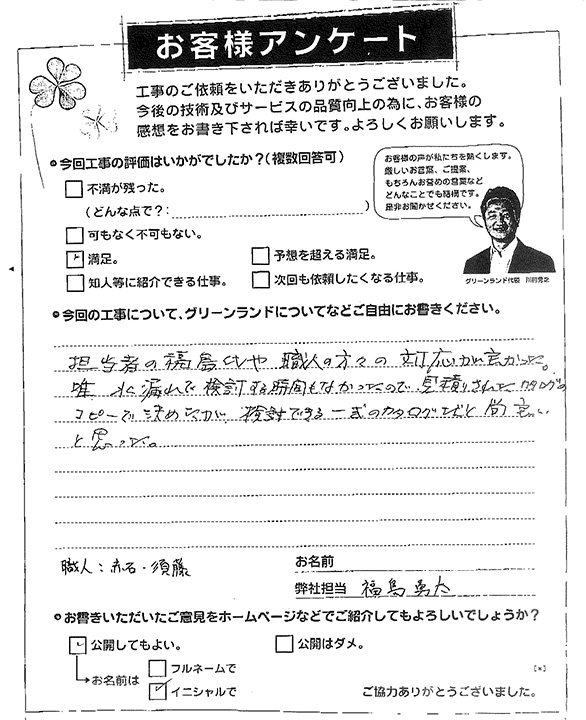 お客様アンケート
工事のご依頼をいただきありがとうございました。
今後の技術及びサービスの品質向上の為に、お客様の
感想をお書き下されば幸いです。よろしくお願いします。
今回工事の評価はいかがでしたか?(複数回答可)
不満が残った。
(どんな点で?: )
可もなく不可もない。
満足。
予想を超える満足。
知人等に紹介できる仕事。
次回も依頼したくなる仕事。
お客様の声が私たちを熱くします。
厳しいお言葉、ご提案、
もちろんお誉めの言葉など
どんなことでも結構です。
是非お聞かせください。
グリーンランド代表
今回の工事について、グリーンランドについてなどご自由にお書きください。
担当者の福島さんや 職人の方々の対応が良かった。
唯 水漏れで検討する時間もなかったので、見積りされたカタログの
コピーで決めたが、検討できる一式のカタログだと尚良い
と思った。
職人:赤石・須藤
お名前
弊社担当 福島勇太
お書きいただいたご意見をホームページなどでご紹介してもよろしいでしょうか?
公開してもよい。
公開はダメ。
お名前は
フルネームで
イニシャルで
ご協力ありがとうございました。